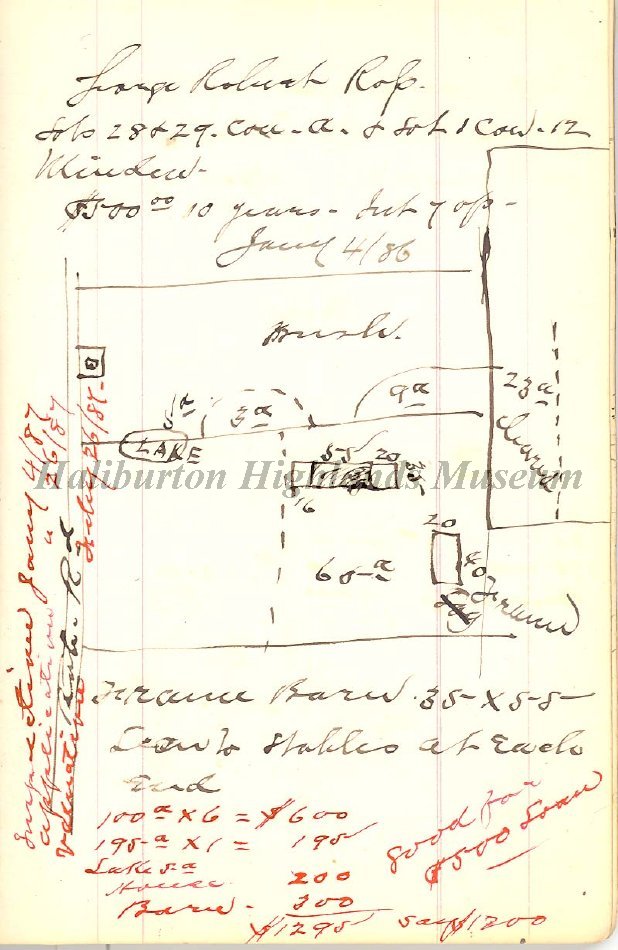 George Robert Ross.
Lots 28 & 29. Con. A. & Lot 1 Con. 12
Minden.
$500 00 10 years - Int 7 op -
Jany 4/86
Bush.
5a
3a
9a
23a
Clear
LAKE
55 20
Haliburton Highlands Museum
16
20
65 a
40
Log
Frame
Inspection Jany 4/87
application " 26/87
valuation
Rd
26/87
Frame Barn 35 x 55
Leanto Stables at Each
End
100 a x 6 = $600
195 a x 1 = 195
Lake 5 a
House 200
Barn - 300
$1295 say $1200
good for
$500 Loan